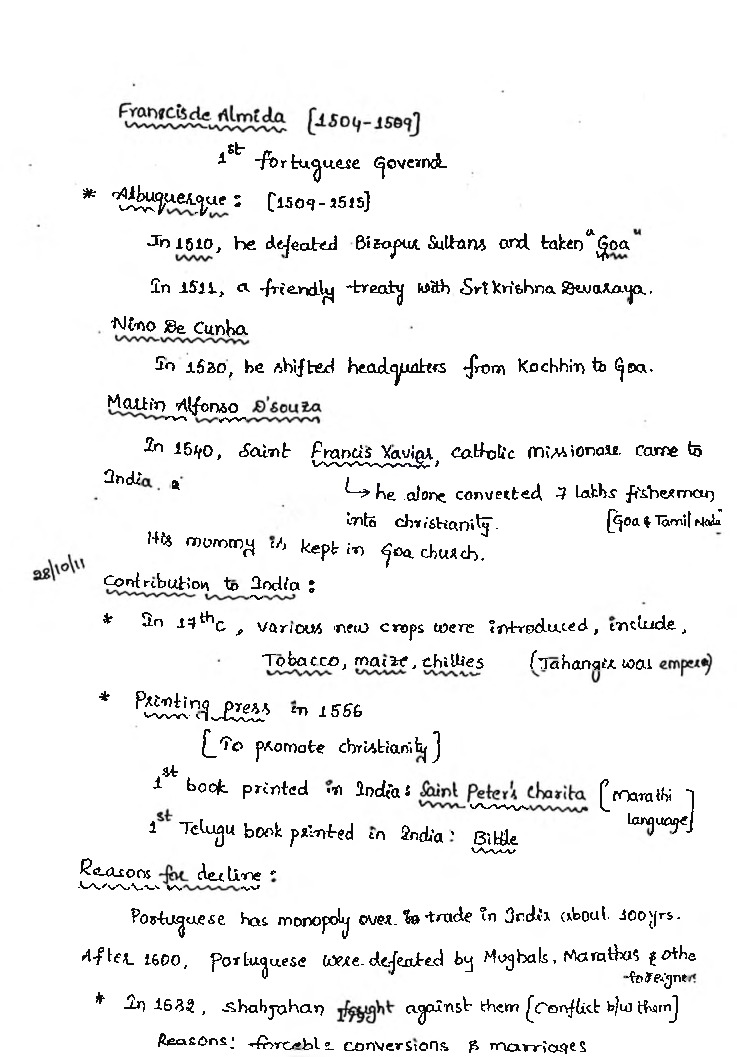 Franscis de Almida [1504-1509]
1st Portuguese Governd
* Albuquesque : [1509-1515]
In 1510, he defeated Bizapur Sultans and taken "Goa"
In 1511, a friendly treaty with Sri Krishna Devaraya.
Nino De Cunha
In 1530, he shifted headquaters from Kochhin to Goa.
Martin Alfonso D'souza
In 1540, Saint Francis Xavier, catholic missionare came to
India.
↳ he alone converted 7 lakhs fisherman
into christianity. [Goa & Tamil Nadu
His mummy is kept in Goa church.
28/10/11
Contribution to India :
* In 17thc, various new crops were introduced, include,
Tobacco, maize, chillies (Jahangir was emperor)
* Printing press in 1556
[To promote christianity]
1st book printed in India : Saint Peter's Charita [Marathi
language]
1st Telugu book printed in India : Bible
Reasons for decline :
Portuguese has monopoly over trade in India about 100yrs.
After 1600, Portuguese were defeated by Mughals, Marathas & othe
foreigners
* In 1632, Shahjahan fought against them [Conflict b/w them]
Reasons: forceble conversions & marriages